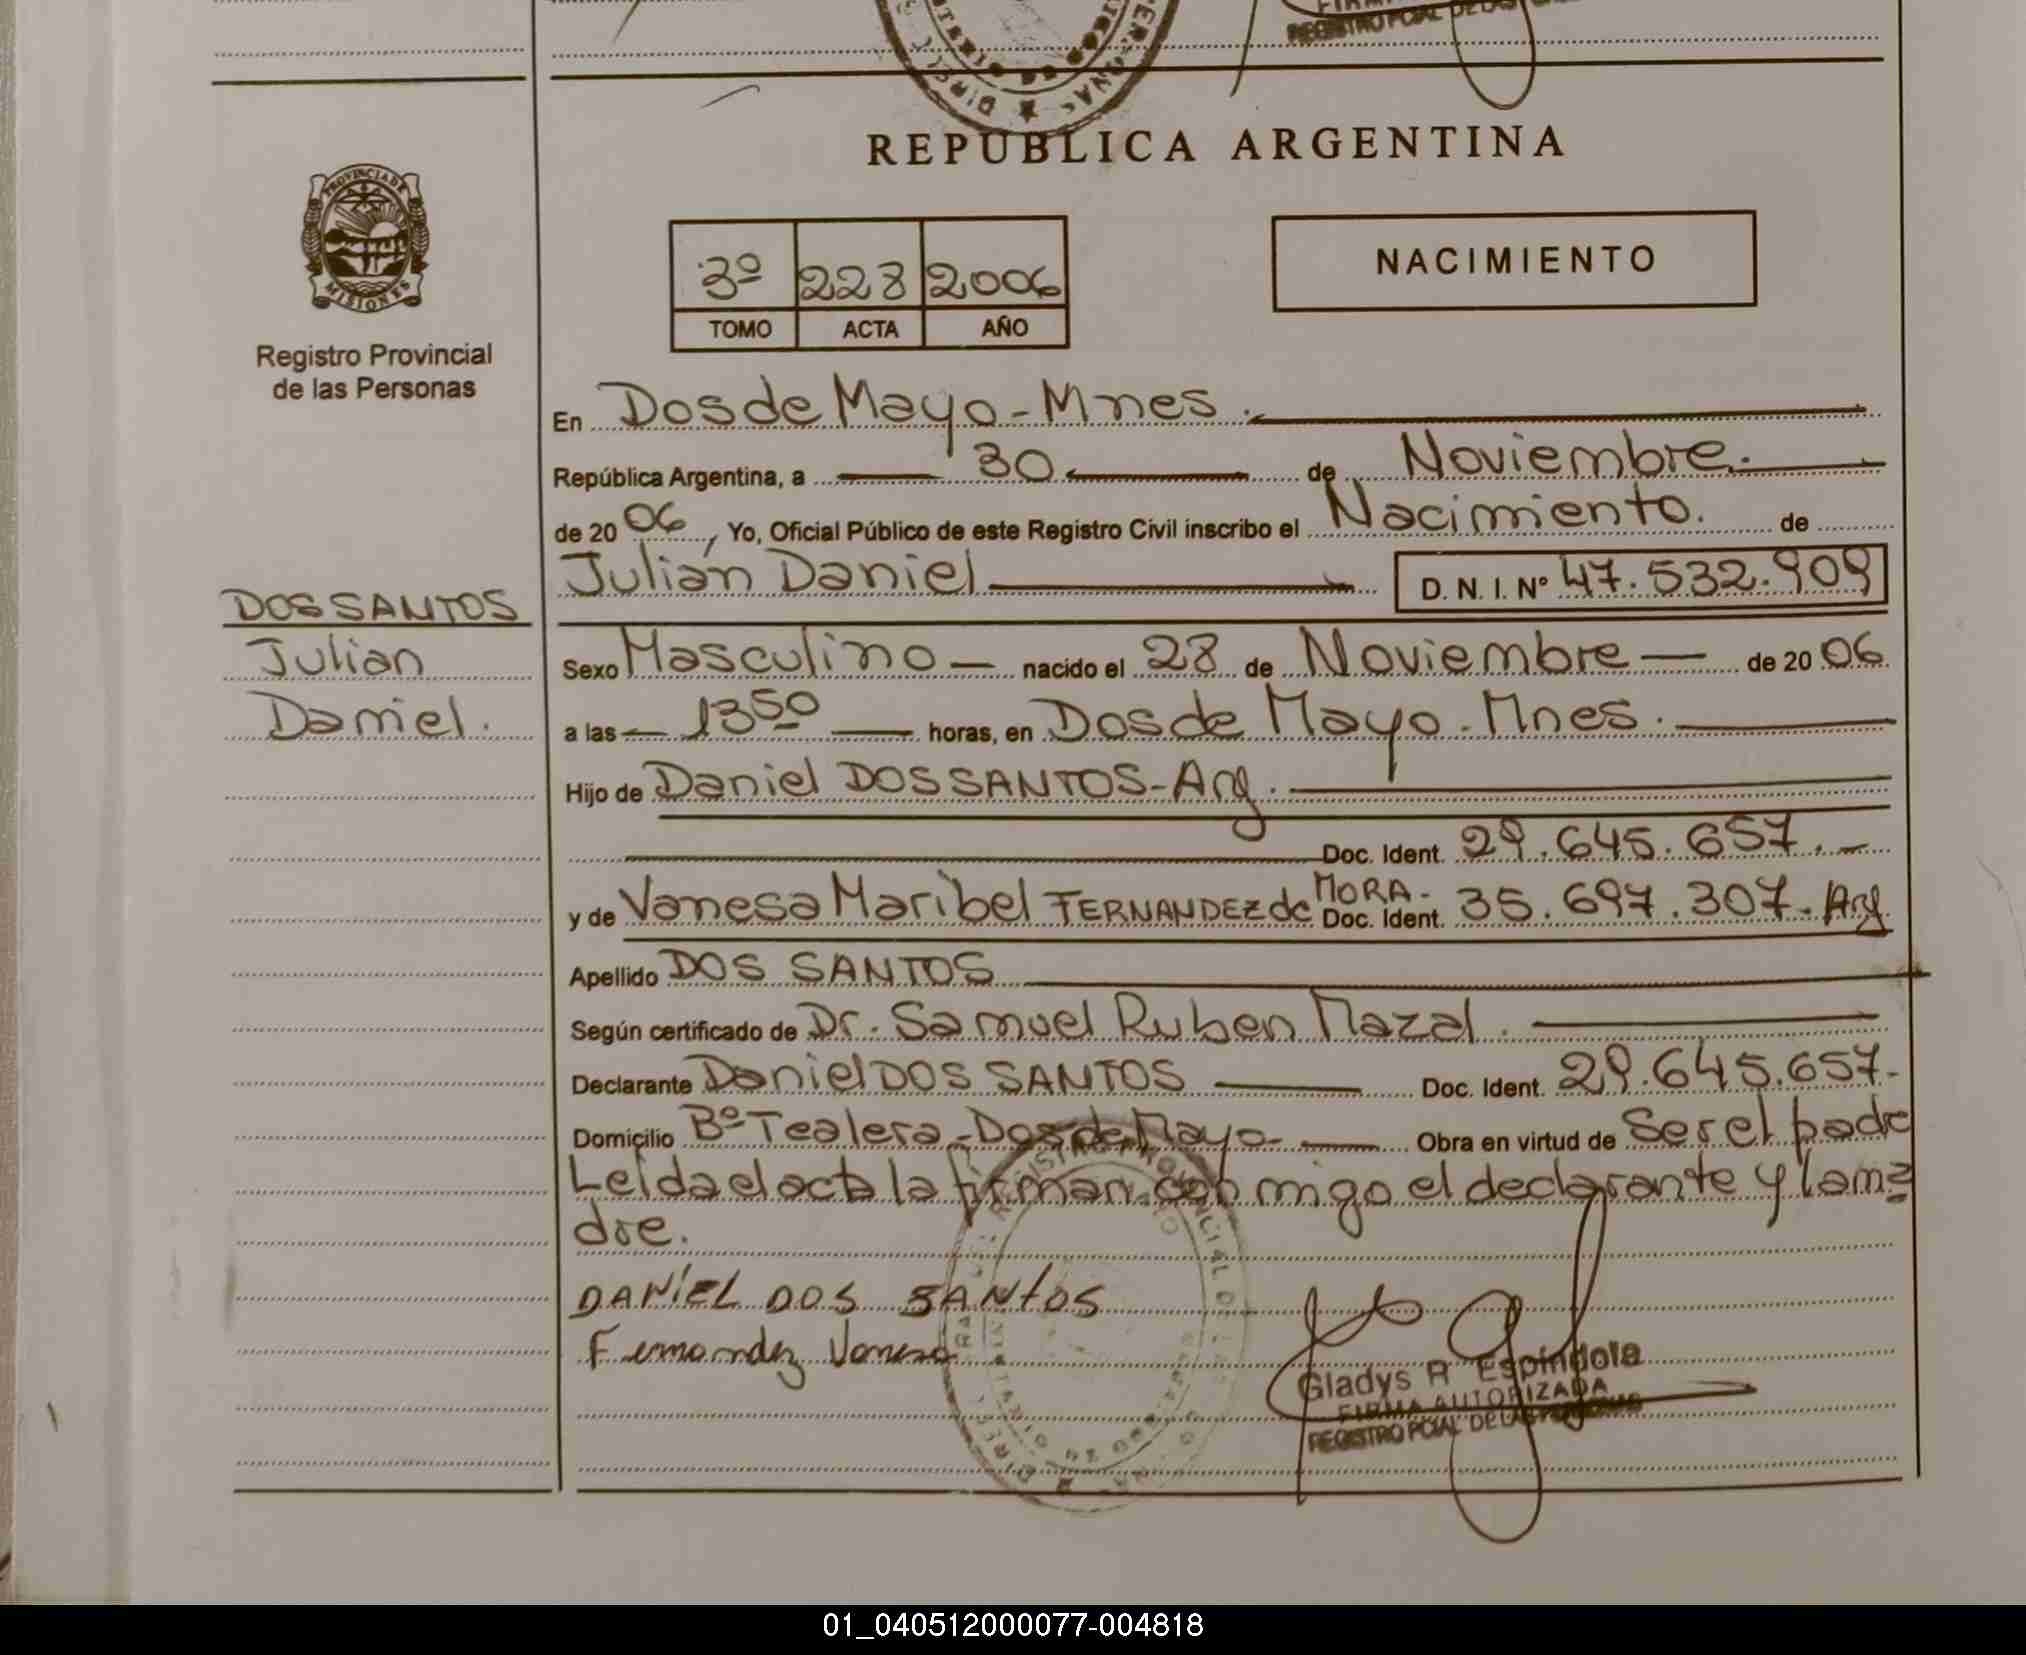 REPUBLICA ARGENTINA
PROVINCIA DE
MISIONES
Registro Provincial
de las Personas
3º 228 2006
TOMO ACTA AÑO
NACIMIENTO
En Dos de Mayo - Mnes.
República Argentina, a 30 de Noviembre.
de 2006, Yo, Oficial Público de este Registro Civil inscribo el Nacimiento. de
Julián Daniel D. N. I. Nº 47.532.909
DOS SANTOS
Julian
Daniel.
Sexo Masculino nacido el 28 de Noviembre de 2006
a las 13 50 horas, en Dos de Mayo - Mnes.
Hijo de Daniel DOS SANTOS - Arg.
Doc. Ident. 29.645.657.-
y de Vanesa Maribel FERNANDEZ de MORA - Doc. Ident. 35.697.307.- Arg
Apellido DOS SANTOS
Según certificado de Dr. Samuel Ruben Mazal.
Declarante Daniel DOS SANTOS Doc. Ident. 29.645.657.-
Domicilio Bº Tealera - Dos de Mayo - Obra en virtud de Ser el padre
Leida el acta la firman conmigo el declarante y la ma
dre.
DANIEL DOS SANTOS
Fernandez Vanesa
Gladys R Espíndola
FIRMA AUTORIZADA
REGISTRO PCIAL DE LAS PERSONAS
01_040512000077-004818